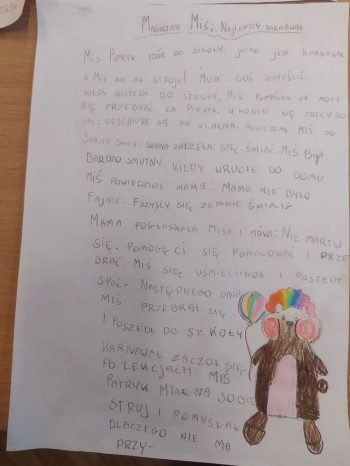 Magiczny Miś i Najlepszy karnawał
Miś Patryk idzie do szkoły. jutro jest karnawał
a Miś nie ma stroju! Musi coś wymyślić.
Kiedy doszedł do szkoły, Miś pomyślał że może
się przebrać za pirata. W końcu się zdecydo
wał przebierze się za klauna. Powiedział Miś do
Sarny Sary. Sarna zaczeła się śmiać. Miś Był
Bardzo smutny kiedy wrucił do domu
Miś powiedział mamie: Mamo nie było
fajnie. Fszyscy się ze mnie śmiali
Mama pogłaskała Misia i mówi: Nie martw
się. Pomogę ci się pomalować i prze
brać. Miś się uśmiechnoł i poszedł
spać. Następnego dnia
Miś przebrał się
i poszedł do szkoły
Karnawał zaczoł się
po lekcjach. Miś
Patryk miał na sobie
struj i pomyślał
dlaczego nie ma
przy-